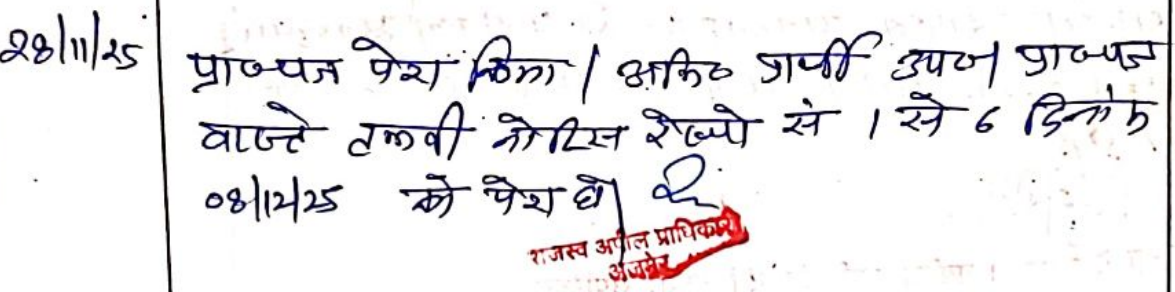 28/11/25
प्रा०पत्र पेश किया। अभि० प्रार्थी उप०। प्रा०पत्र
वास्ते तलबी नोटिस रेस्पो सं 1 से 6 दिनांक
08/12/25 को पेश हो।
राजस्व अपील प्राधिकारी
अजमेर